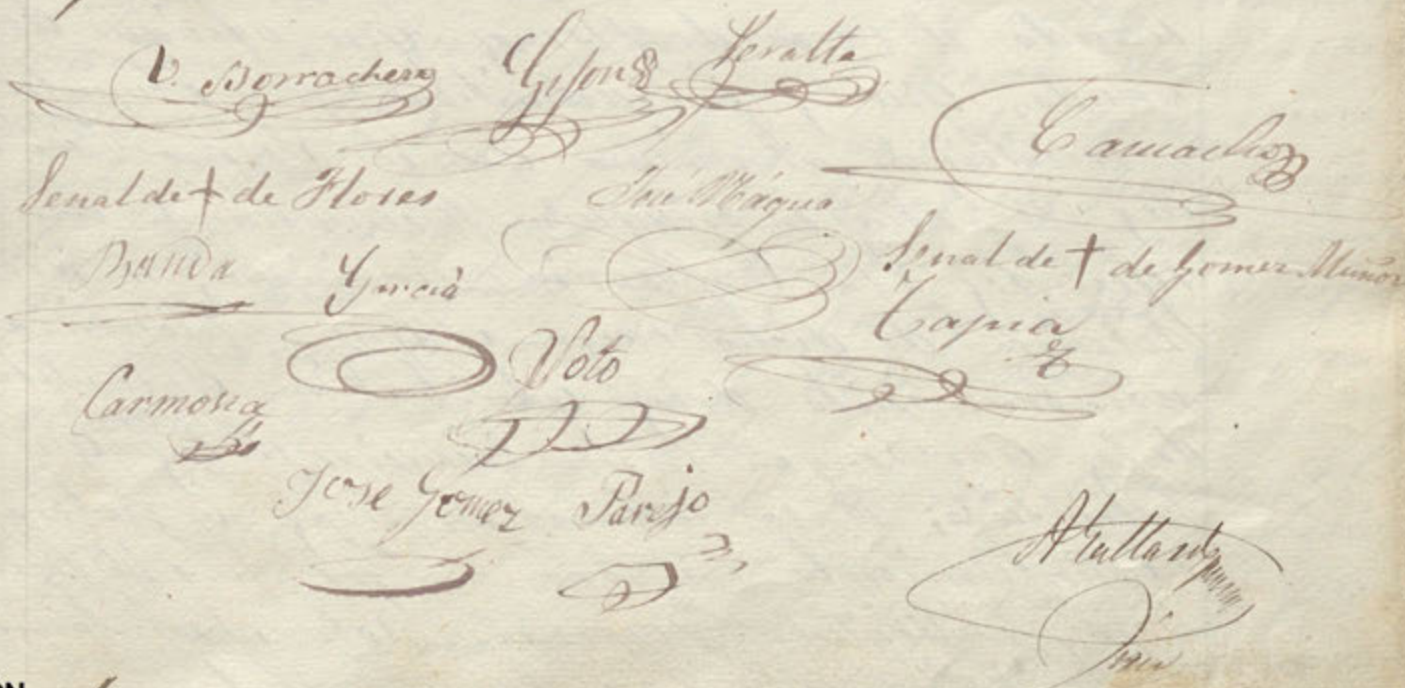 V. Borrachero Gijon Peralta
Camacho
Señal de † de Flores José Mágua
Banda García Señal de † de Gomez Muñoz
Tapia
Carmona Voto
Jose Gomez Parejo